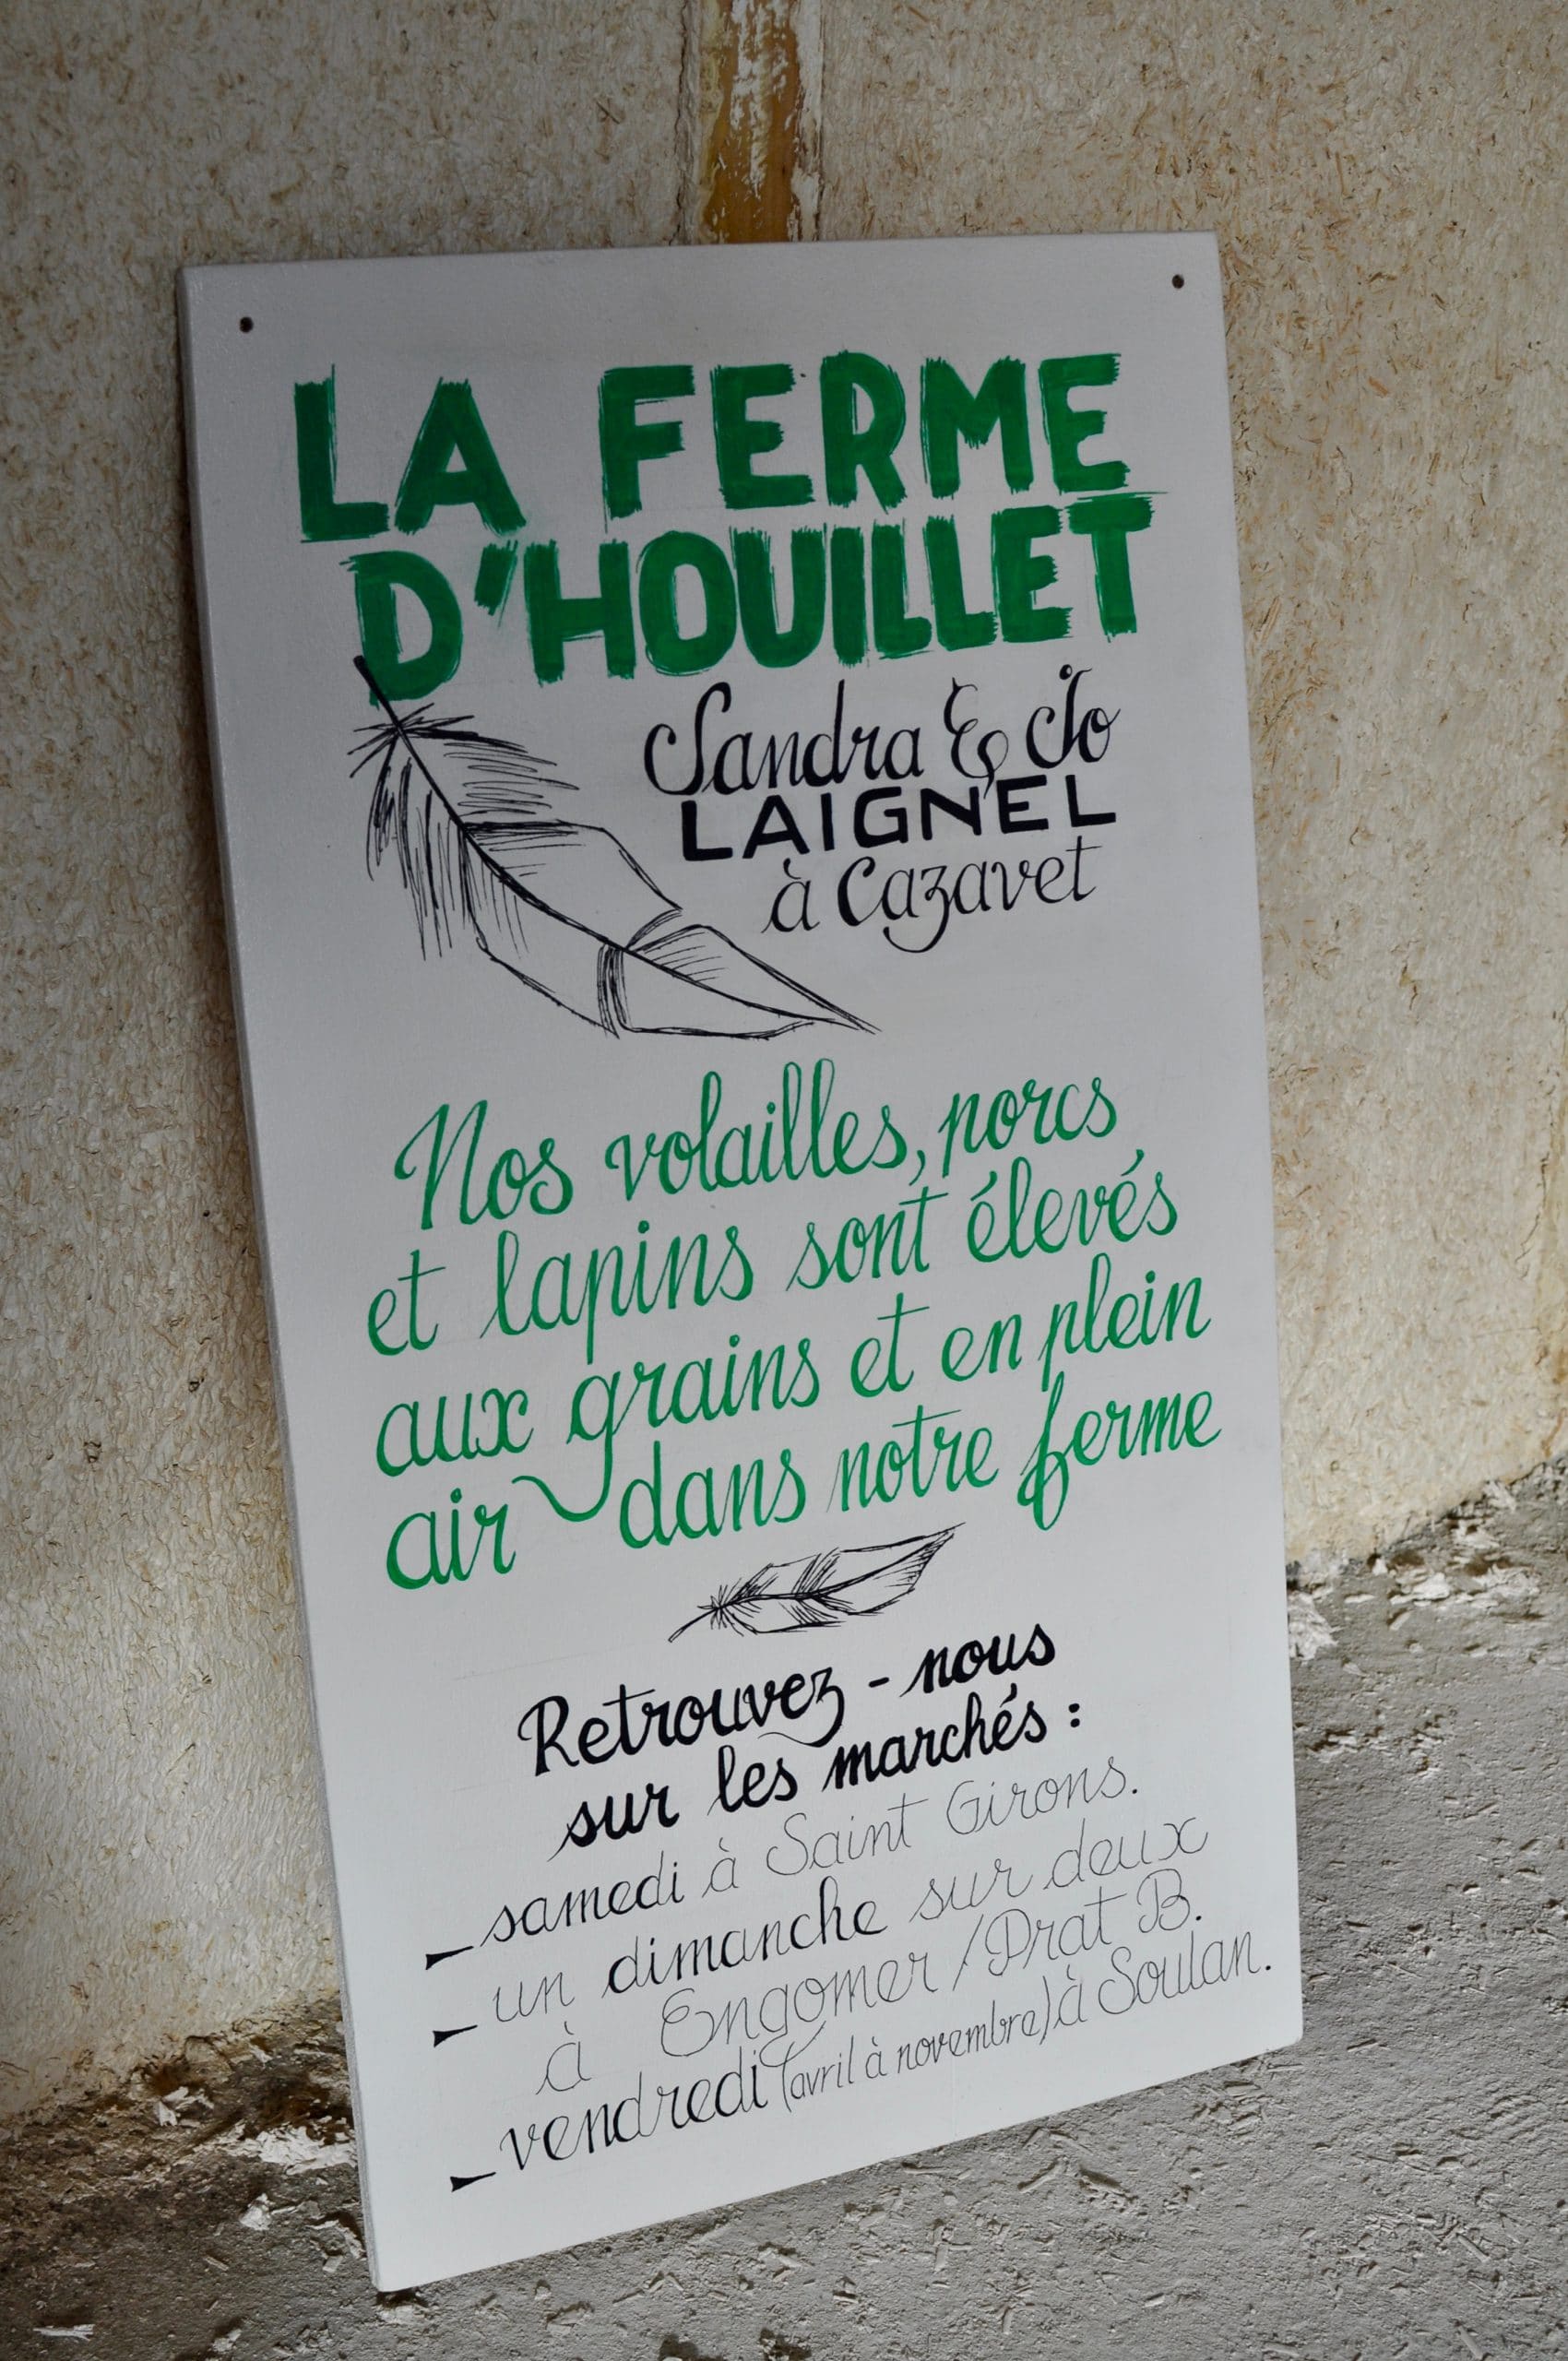 LA FERME
D'HOUILLET
Sandra & Jo
LAIGNEL
à Cazavet
Nos volailles, porcs
et lapins sont élevés
aux grains et en plein
air dans notre ferme
Retrouvez-nous
sur les marchés :
_ samedi à Saint Girons.
_ un dimanche sur deux
à Engomer/Prat B.
_ vendredi (avril à novembre) à Soulan.